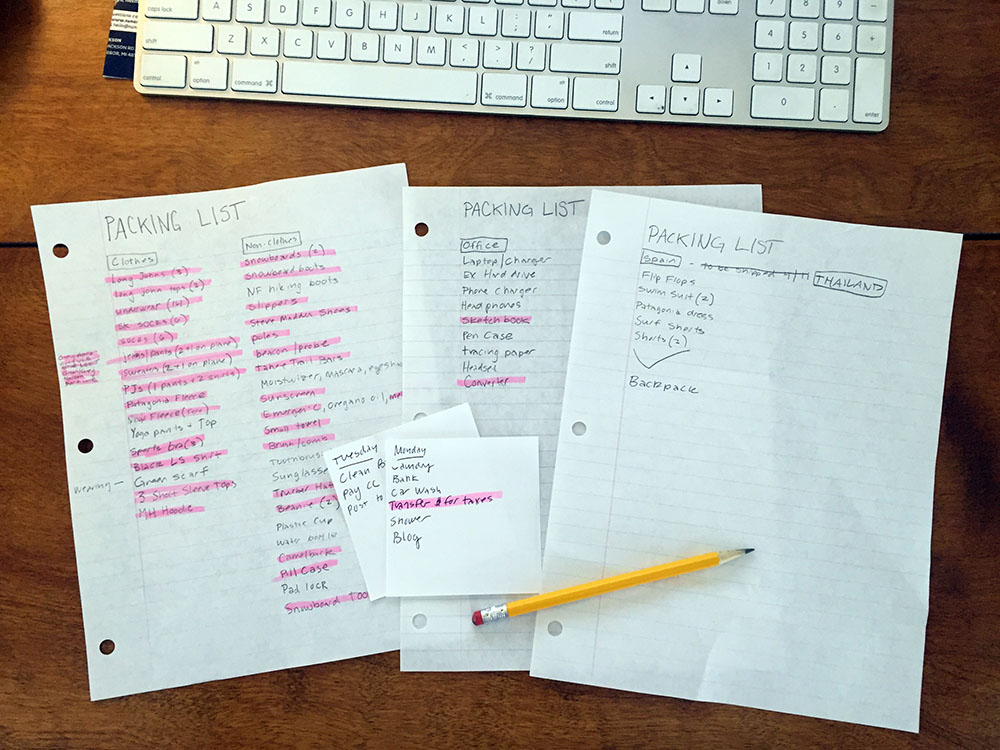 caps lock A S D F G H J K L : ; " ' return 4 5 6 +
shift Z X C V B N M < , > . ? / shift 1 2 3
control option command command option control 0 . enter
JACKSON
PACKING LIST
Clothes
Long Johns (3)
long john tops (2)
underwear
SK socks (6)
socks (6)
jeans/pants (2+1 on plane)
Sweaters (2+1 on plane)
PJs (1 pants + 2 shirts)
Patagonia Fleece
Fleece
Yoga pants + Top
Sports bra (3)
Black LS Shirt
wearing — Green Scarf
3 Short Sleeve Tops
MH Hoodie
Non-clothes
Snowboards (2)
Snowboard boots
NF hiking boots
Slippers
Steve Madden Shoes
poles
beacon/probe
Tahoe Trail Bars
Moisturizer, Mascara,
Sunscreen
Emergen-C, oregano oil,
Small towel
Brush/comb
Sunglasses
Trucker Hat
Beanie (2)
Plastic Cup
Water bottle
Camelback
Pill Case
Pad lock
Snowboard
PACKING LIST
Office
Laptop/Charger
Ex Hard drive
Phone charger
Headphones
Sketch book
Pen Case
tracing paper
Headset
Converter
PACKING LIST
Spain - to be shipped THAILAND
Flip Flops
Swim suit (2)
Patagonia dress
Surf Shorts
Shorts (2)
Backpack
Tuesday
Clean
Pay CC
Post to
Monday
Laundry
Bank
Car Wash
Transfer $ for taxes
Shower
Blog